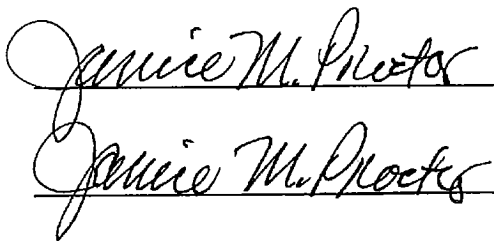 Janice M. Procter
Janice M. Procter